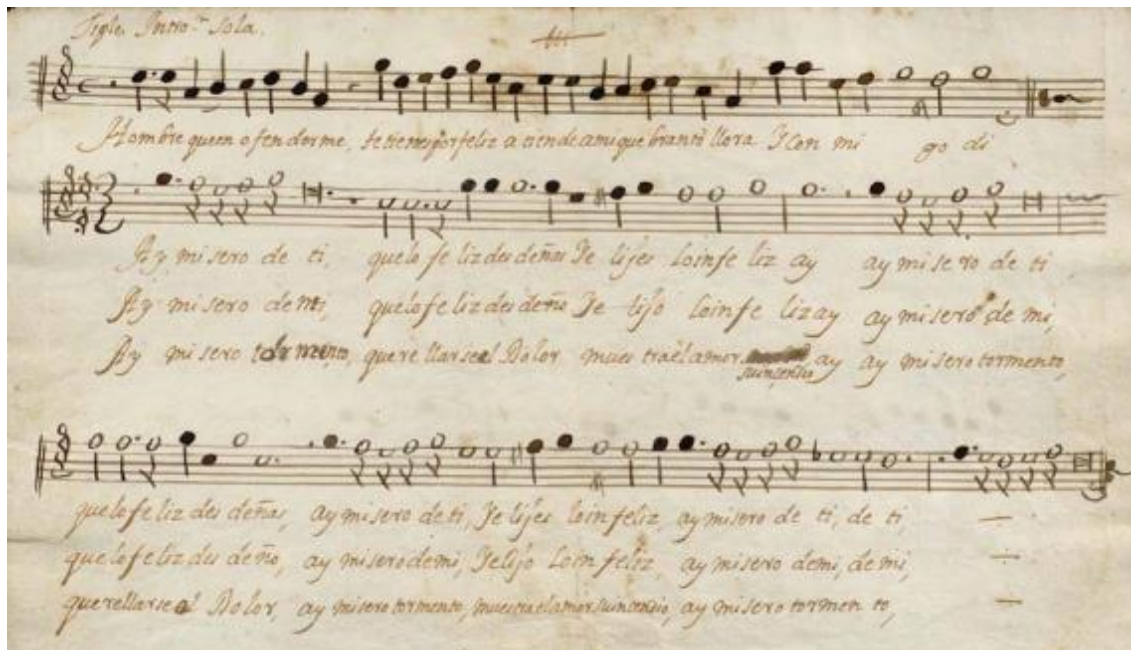 Tiple. Introⁿ Sola.
Hombre queen ofenderme, te tienes por feliz atiende ami quebranto llora Y con mi go di
Ay misero de ti, quelo feliz des deñas Ye lijes loinfe liz ay ay mi se ro de ti
Ay misero de mi, quelo fe liz des deño Ye lijo loinfe liz ay ay misero de mi,
Ay misero tormento, quere llarse al Dolor mues trael amor ay ay misero tormento,
suincendio
quelo fe liz des deñas, ay misero de ti, Ye lijes loin feliz, ay misero de ti, de ti
quelo fe liz des deño, ay misero de mi, Ye lijo loin feliz, ay misero de mi, de mi,
querellarse al Dolor, ay misero tormento, muestrael amor suincendio, ay misero tormen to,